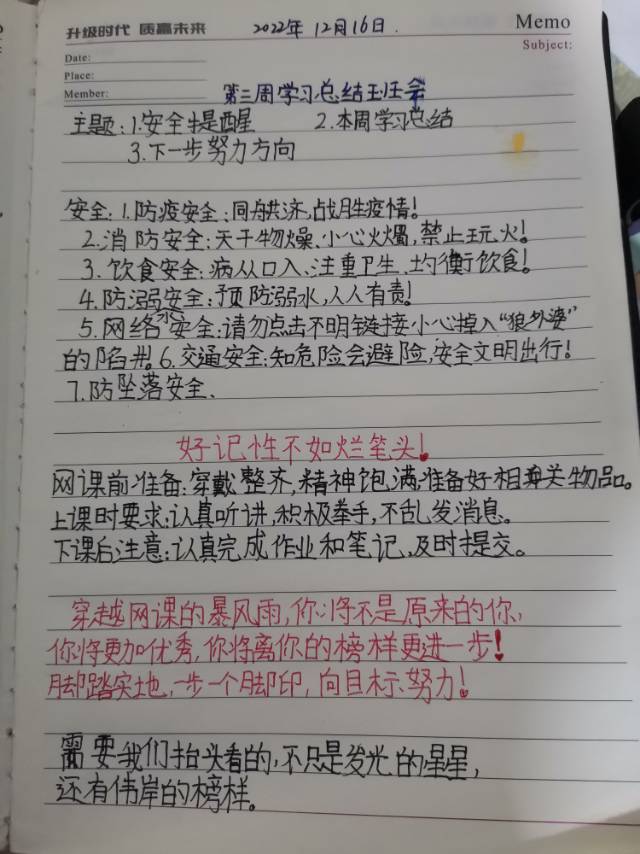 升级时代 质赢未来
2022年12月16日.
Memo
Date:
Subject:
Place:
Member:
第三周学习总结班会
主题:1.安全提醒 2.本周学习总结
3.下一步努力方向
安全:1.防疫安全:同舟共济,战胜疫情!
2.消防安全:天干物燥、小心火烛,禁止玩火!
3.饮食安全:病从口入、注重卫生、均衡饮食!
4.防溺水安全:预防溺水,人人有责!
5.网络安全:请勿点击不明链接小心掉入“狼外婆”
的陷井。6.交通安全:知危险会避险,安全文明出行!
7.防坠落安全.
好记性不如烂笔头!
网课前准备:穿戴整齐,精神饱满准备好相关物品。
上课时要求:认真听讲,积极举手,不乱发消息。
下课后注意:认真完成作业和笔记,及时提交。
穿越网课的暴风雨,你将不是原来的你,
你将更加优秀,你将离你的榜样更进一步!
脚踏实地,一步一个脚印,向目标努力!
需要我们抬头看的,不只是发光的星星,
还有伟岸的榜样。